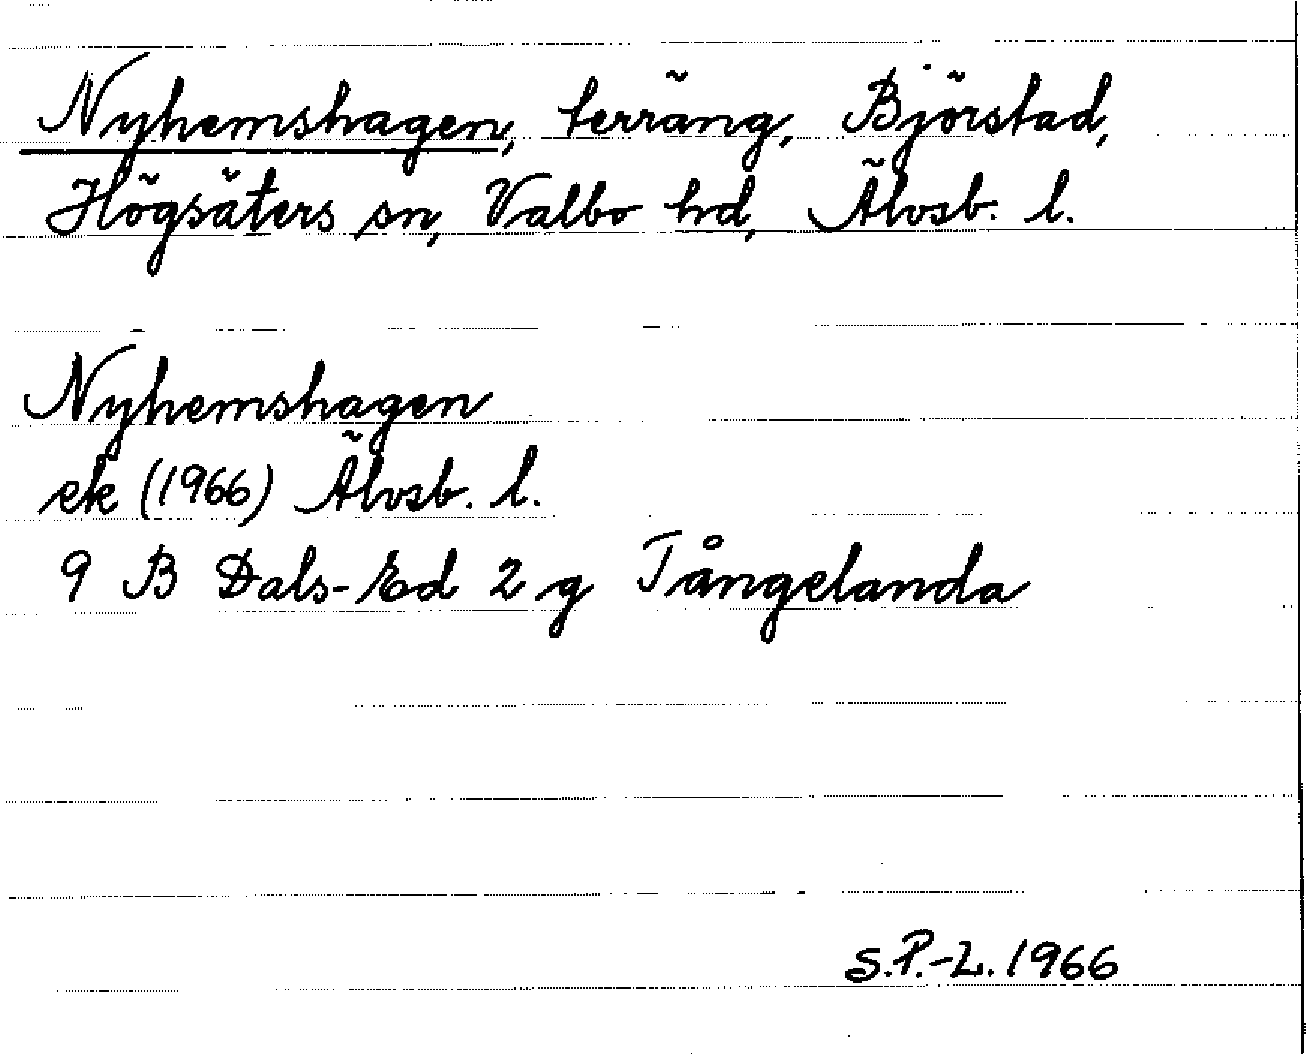 Nyhemshagen, terräng, Björstad,
Högsäters sn, Valbo hd, Älvsb. l.
Nyhemshagen
ek (1966) Älvsb. l.
9 B Dals-Ed 2 g Tångelanda
S.P.-L. 1966